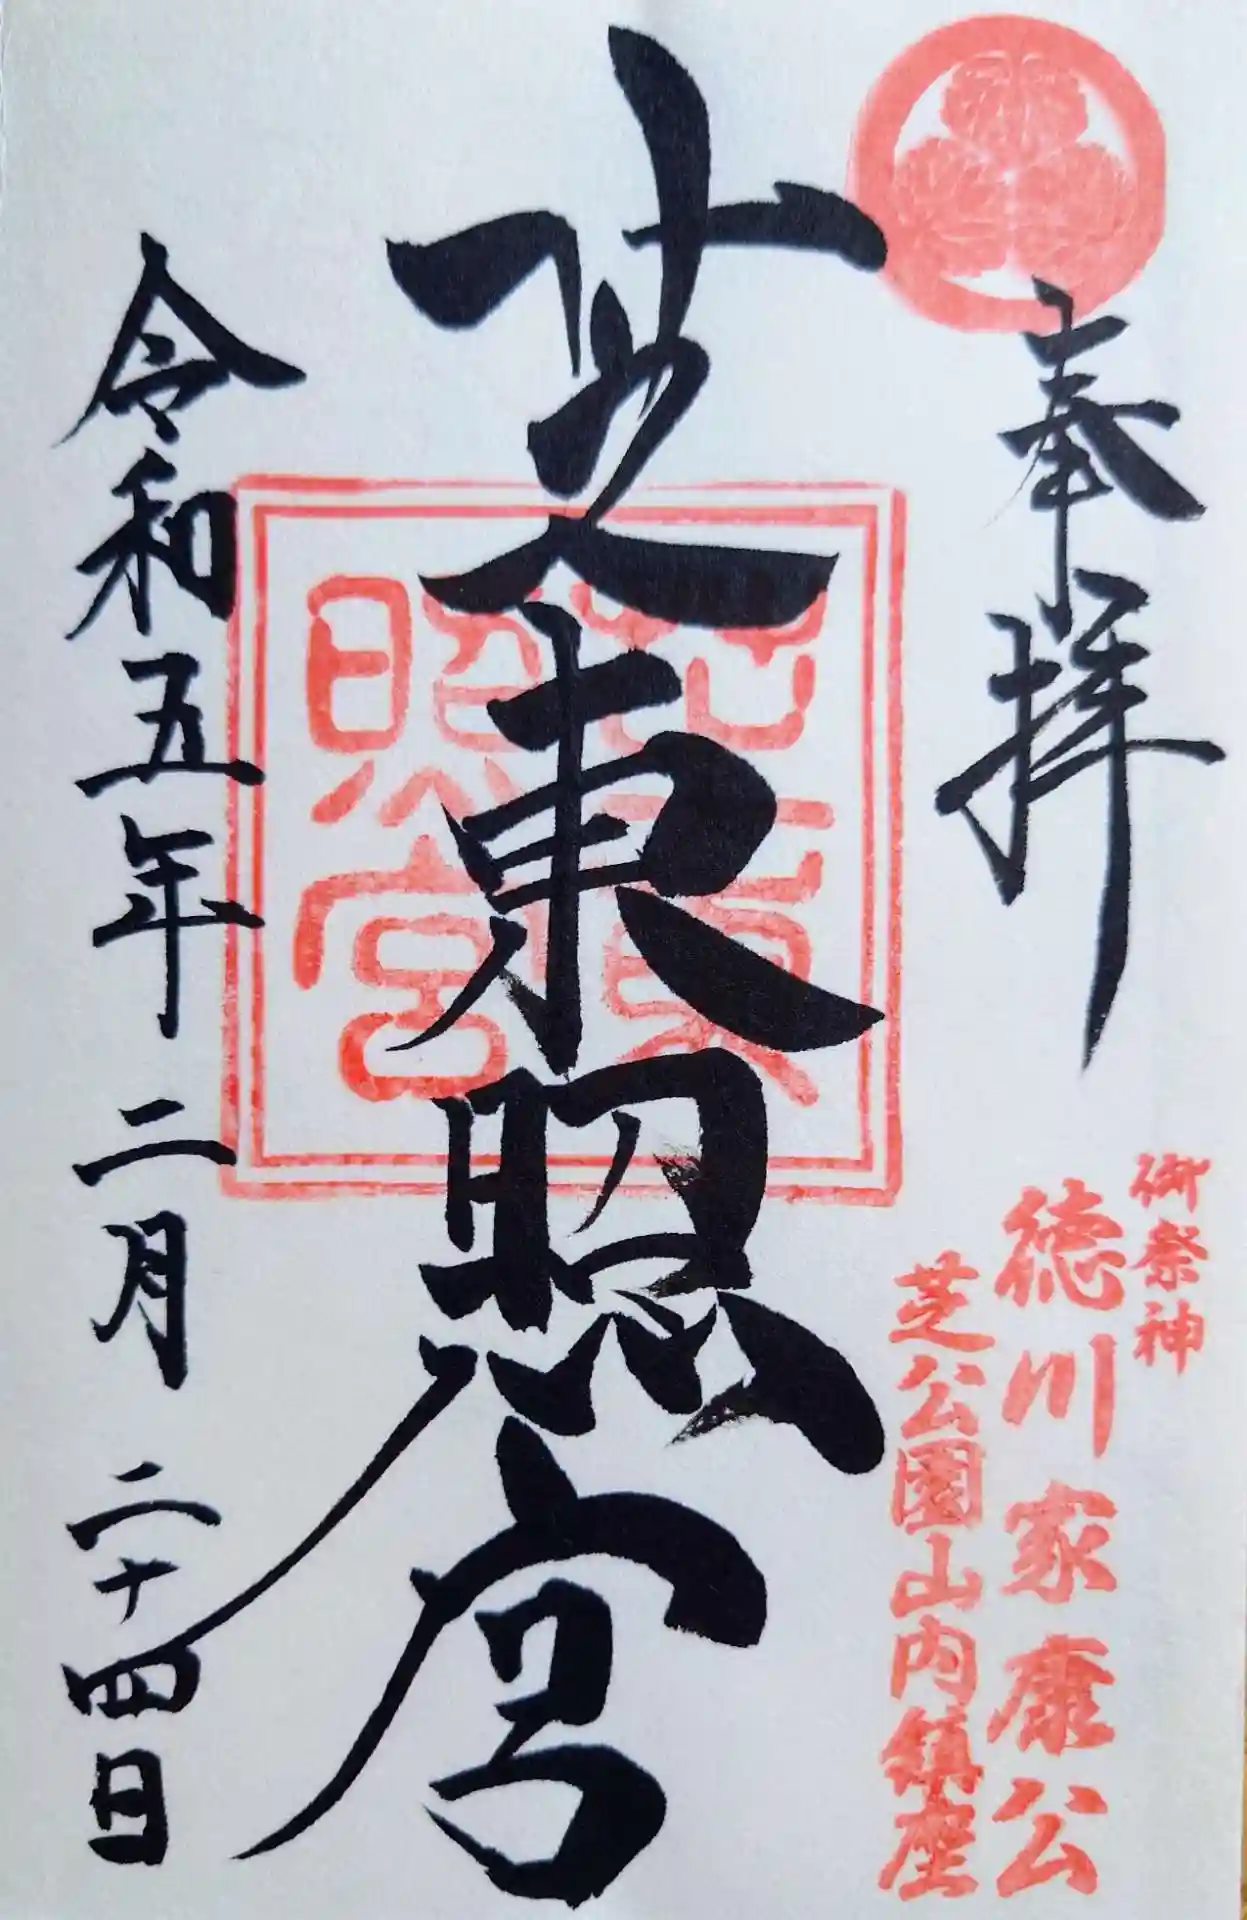 奉拝
御祭神
徳川家康公
芝公園山内鎮座
芝東照宮
芝東
照宮
令和五年二月二十四日